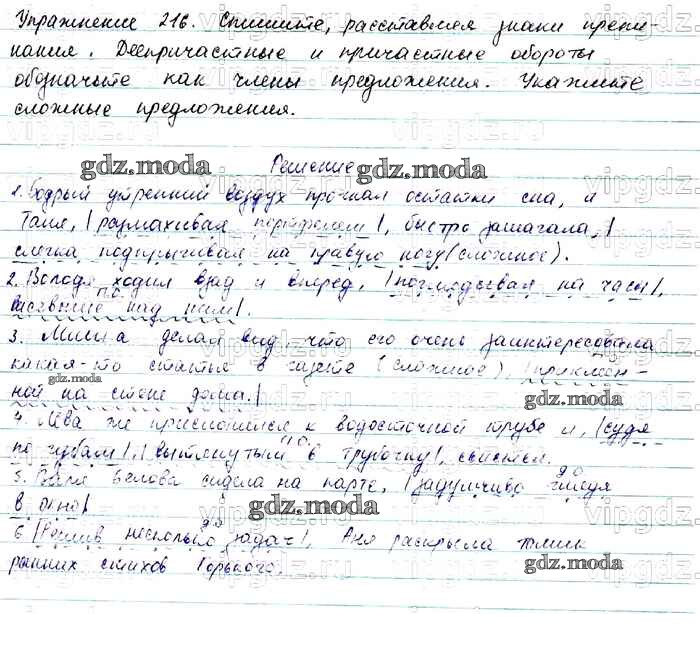 Упражнение 216. Спишите, расставляя знаки препи-
нания. Деепричастные и причастные обороты
обозначьте как члены предложения. Укажите
сложные предложения.
Решение
1. Бодрый утренний воздух прогнал остатки сна, и
Таня, |размахивая портфелем|, быстро зашагала, |
слегка подпрыгивая на правую ногу (сложное).
2. Володя ходил взад и вперед, |поглядывая на часы|,
п.о.
висевшие над ним|.
3. Миша делал вид, что его очень заинтересовала
какая-то статья в газете (сложное), |приклеен-
ной на стене дома.|
4. Лёва же прислонился к водосточной трубе и, |судя
п.о.
по губам|, |вытянутым в трубочку|, свистел.
5. Валя Белова сидела на парте, |задумчиво глядя
д.о.
в окно|
д.о.
6. |Решив несколько задач|, Аня раскрыла томик
ранних стихов Горького.
gdz.moda
gdz.moda
gdz.moda
gdz.moda
gdz.moda
gdz.moda
vipgdz.ru